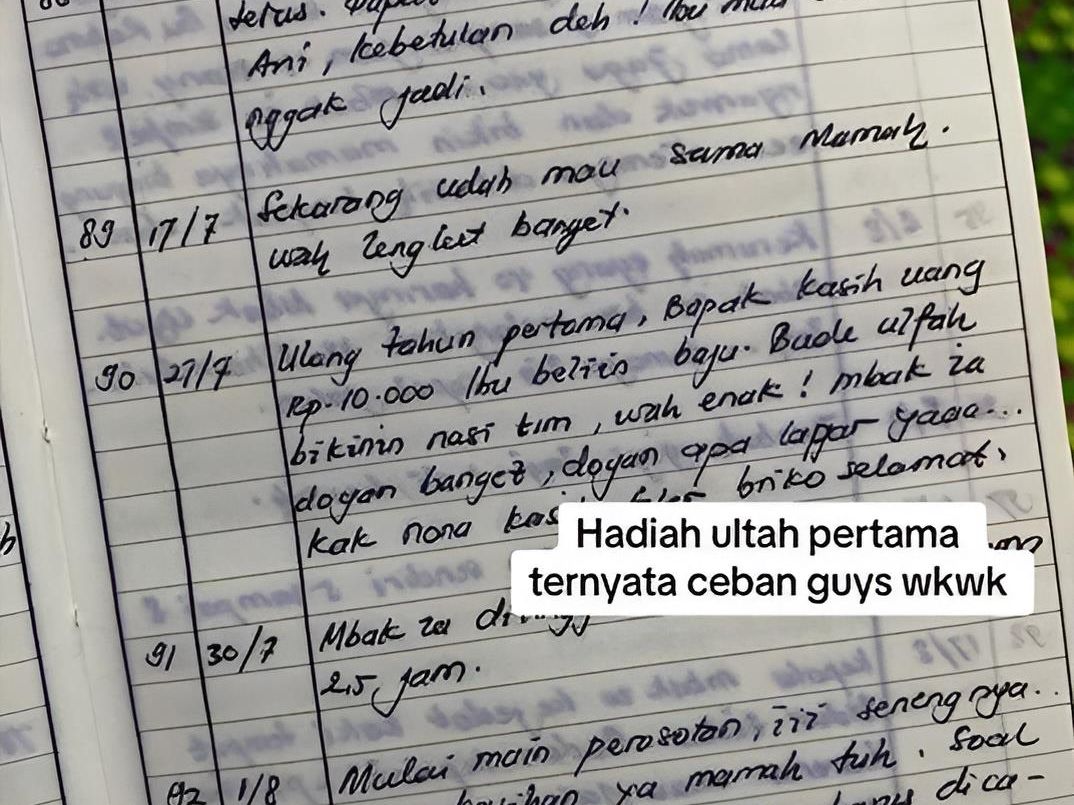 terus.
Ani, kebetulan deh! Ibu
nggak jadi.
89 17/7 Sekarang udah mau sama Mamah.
wah lengket banget.
90 27/7 Ulang tahun pertama, Bapak kasih uang
Rp. 10.000 Ibu beliin baju. Bude Ulfah
bikinin nasi tim, wah enak! Mbak Za
doyan banget, doyan apa lapar yaaa...
kak nona briko selamat,
Hadiah ultah pertama
ternyata ceban guys wkwk
91 30/7 Mbak Za
2,5 jam.
92 1/8 Mulai main perosotan, iii senengnya..
ya mamah tuh. Soal
dica-